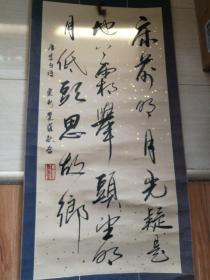 床前明月光疑是
地上霜舉頭望明
月低頭思故鄉
唐李白詩